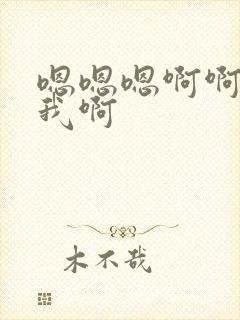 嗯嗯嗯啊啊
我啊
木不哉